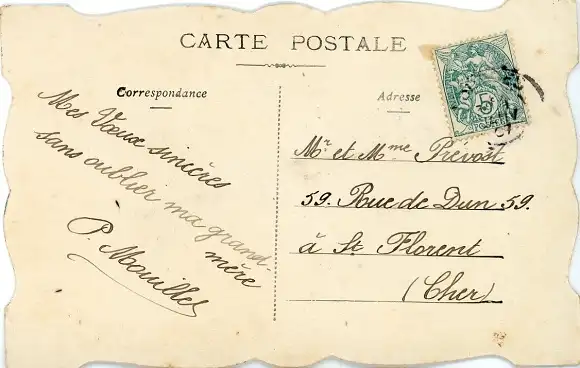 CARTE POSTALE
Correspondance
Adresse
Mes Vœux sincères
sans oublier ma grand-
mère
P. Mouillet
Mr et Mme Prévost
59. Rue de Dun 59.
à St Florent
(Cher)
5